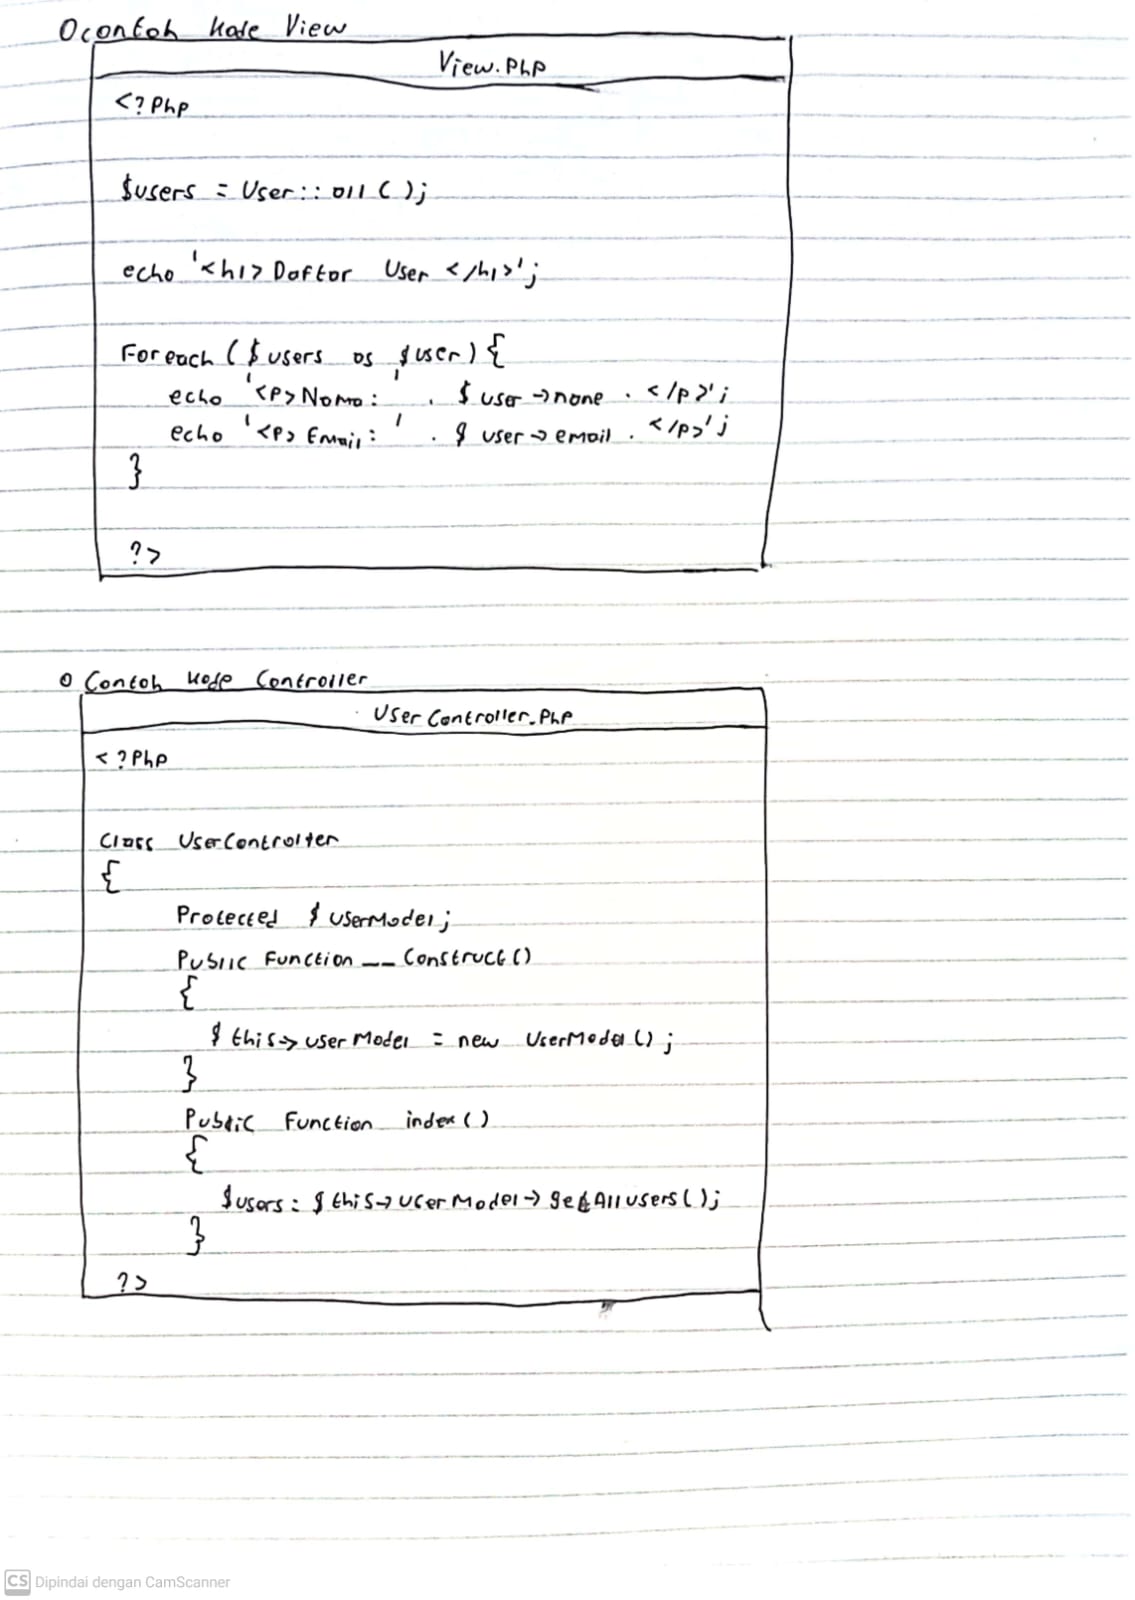 O Contoh kode View
View.php
<?php
$users = User::all();
echo '<h1>Daftar User </h1>';
Foreach ($users as $user) {
echo '<p>Nama: ' . $user->name . </p>';
echo '<p> Email: ' . $user->email . </p>';
}
?>
O Contoh kode Controller
User Controller.php
<?php
Class UserController
{
Protected $userModel;
Public Function __Construct()
{
$this->userModel = new UserModel();
}
Public Function index()
{
$users = $this->userModel->getAllusers();
}
?>
CS Dipindai dengan CamScanner